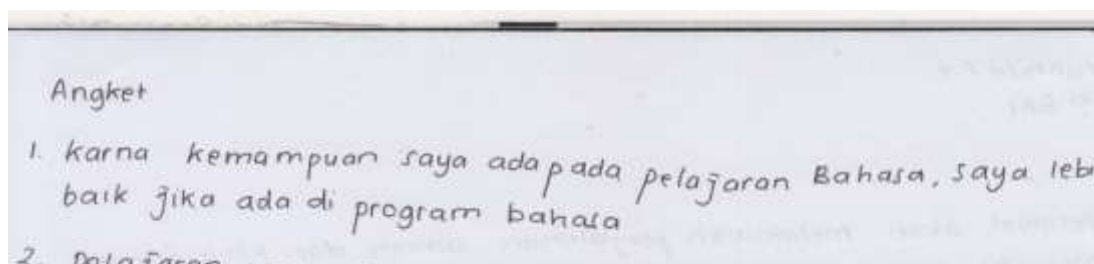 Angket
1. karna kemampuan saya ada pada pelajaran Bahasa, saya leb
baik jika ada di program bahasa
2. pelajaran